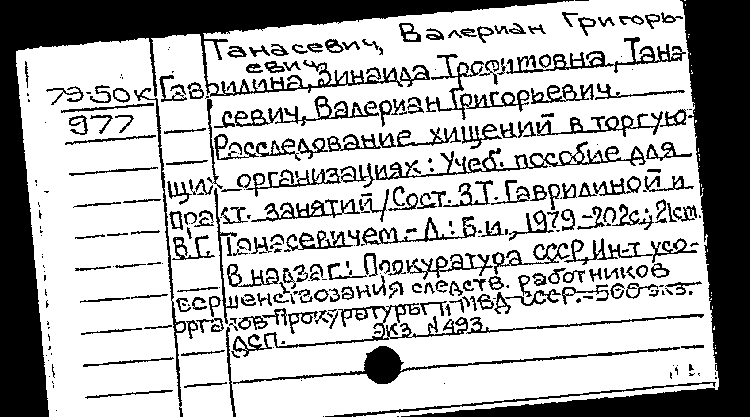 Танасевич, Валериан Григорь-
евич,
79-50к Гаврилина, Зинаида Трофимовна, Тана-
977 севич, Валериан Григорьевич.
Расследование хищений в торгую-
щих организациях: Учеб. пособие для
практ. занятий / Сост. З.Т. Гаврилиной и
В.Г. Танасевичем. - Л.: Б.и., 1979 - 202с.; 21см.
В надзаг.: Прокуратура СССР, Ин-т усо-
вершенствования следств. работников
органов Прокуратуры и МВД СССР. - 500 экз.
ДСП. экз. N 493.